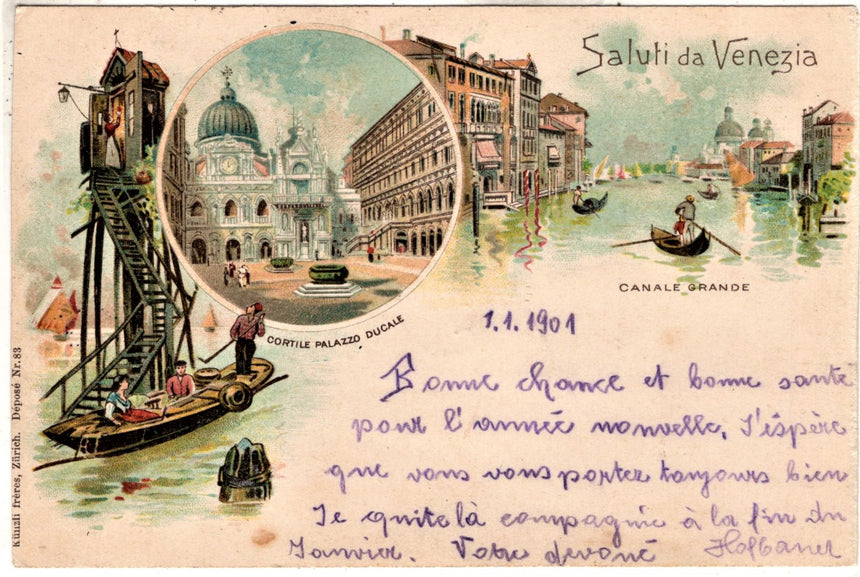 Saluti da Venezia
CANALE GRANDE
CORTILE PALAZZO DUCALE
Künzli frères, Zürich. Déposé Nr. 83
1.1.1901
Bonne chance et bonne santé
pour l'année nouvelle, J'éspère
que vous vous portez toujours bien
Je quite là compagnie à la fin du
Janvier. Votre devoué